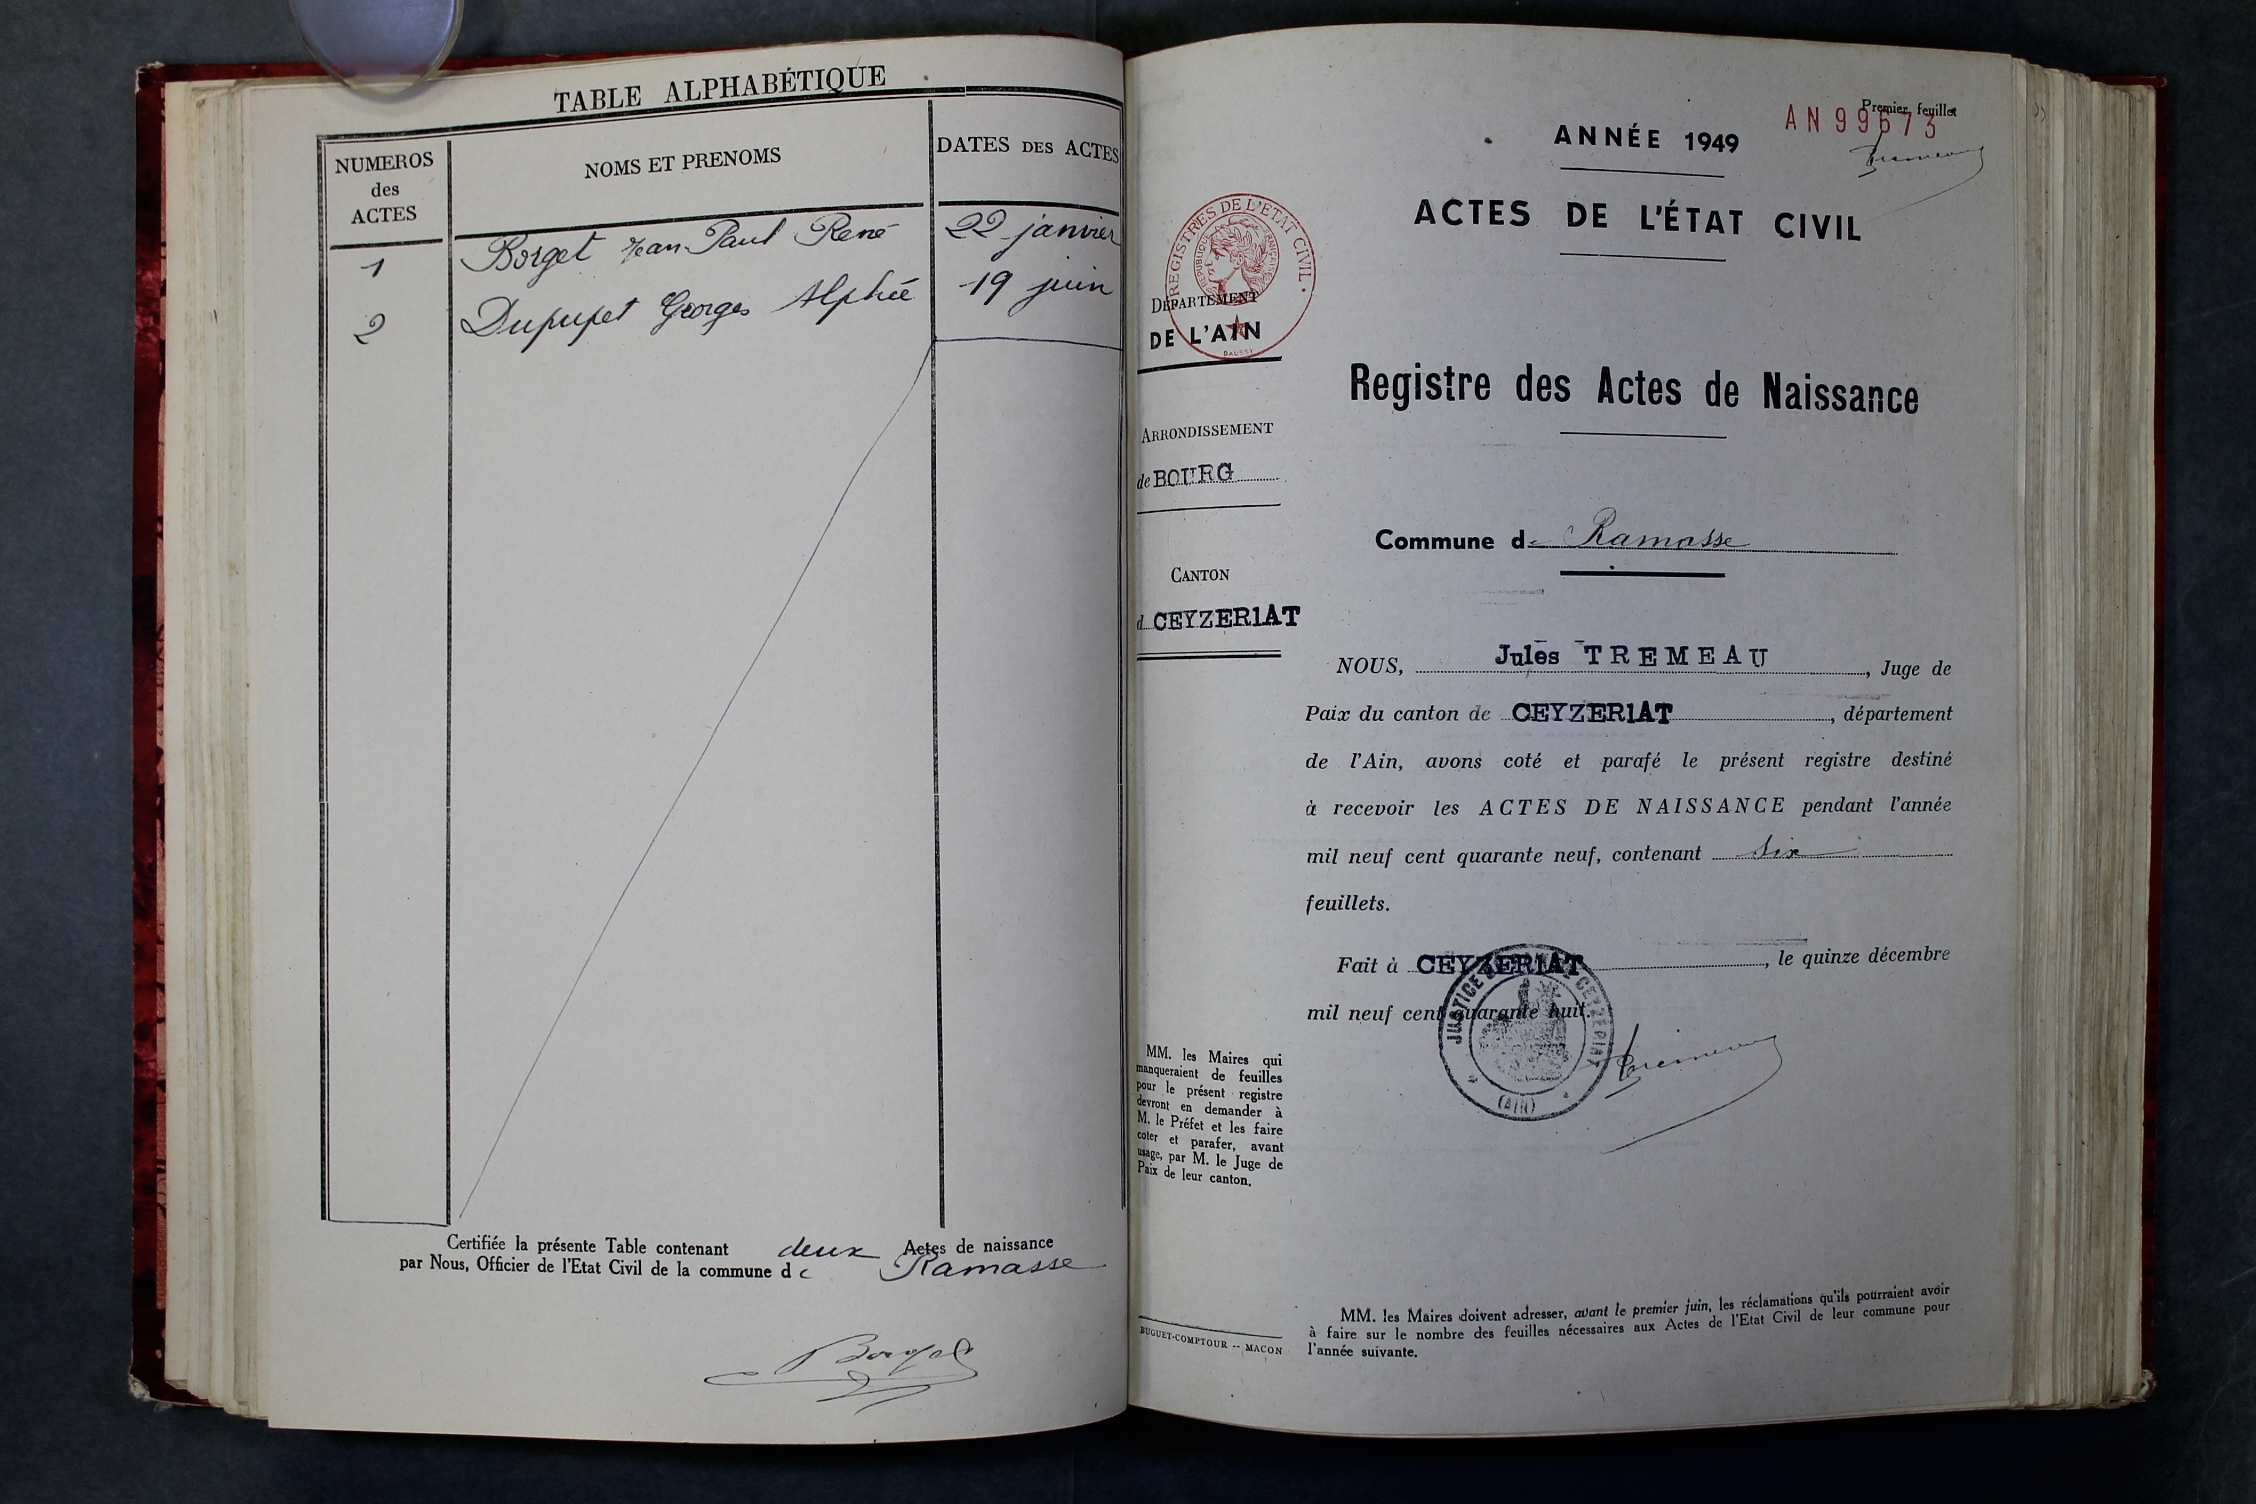 TABLE ALPHABÉTIQUE
NUMEROS
des
ACTES
NOMS ET PRENOMS
DATES DES ACTES
1 Borget Jean-Paul René 22 janvier
2 Dupupet Georges Alphée 19 juin
Certifiée la présente Table contenant deux Actes de naissance
par Nous, Officier de l'Etat Civil de la commune de Ramasse
Borget
Premier feuillet
AN 99673
ANNÉE 1949
ACTES DE L'ÉTAT CIVIL
REGISTRES DE L'ETAT CIVIL
REPUBLIQUE FRANÇAISE
DAUSSY
DÉPARTEMENT
DE L'AIN
ARRONDISSEMENT
de BOURG
CANTON
d CEYZER1AT
Registre des Actes de Naissance
Commune de Ramasse
NOUS, Jules TREMEAU, Juge de
Paix du canton de CEYZER1AT, département
de l'Ain, avons coté et parafé le présent registre destiné
à recevoir les ACTES DE NAISSANCE pendant l'année
mil neuf cent quarante neuf, contenant six
feuillets.
Fait à CEYZER1AT, le quinze décembre
mil neuf cent quarante huit.
JUSTICE CEZZERIAT
(AIN)
Tremeau
MM. les Maires qui
manqueraient de feuilles
pour le présent registre
devront en demander à
M. le Préfet et les faire
coter et parafer, avant
usage, par M. le Juge de
Paix de leur canton.
BUGUET-COMPTOUR -- MACON
MM. les Maires doivent adresser, avant le premier juin, les réclamations qu'ils pourraient avoir
à faire sur le nombre des feuilles nécessaires aux Actes de l'Etat Civil de leur commune pour
l'année suivante.